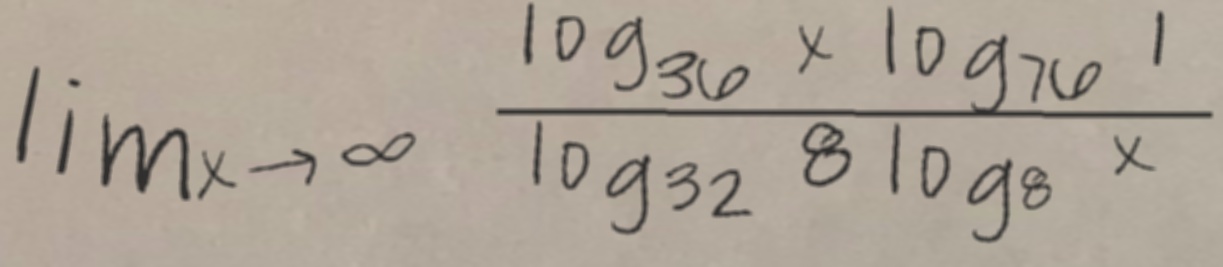 lim x→∞ log₃₆ x log₇₆ 1
log₃₂ 8 log₈ x